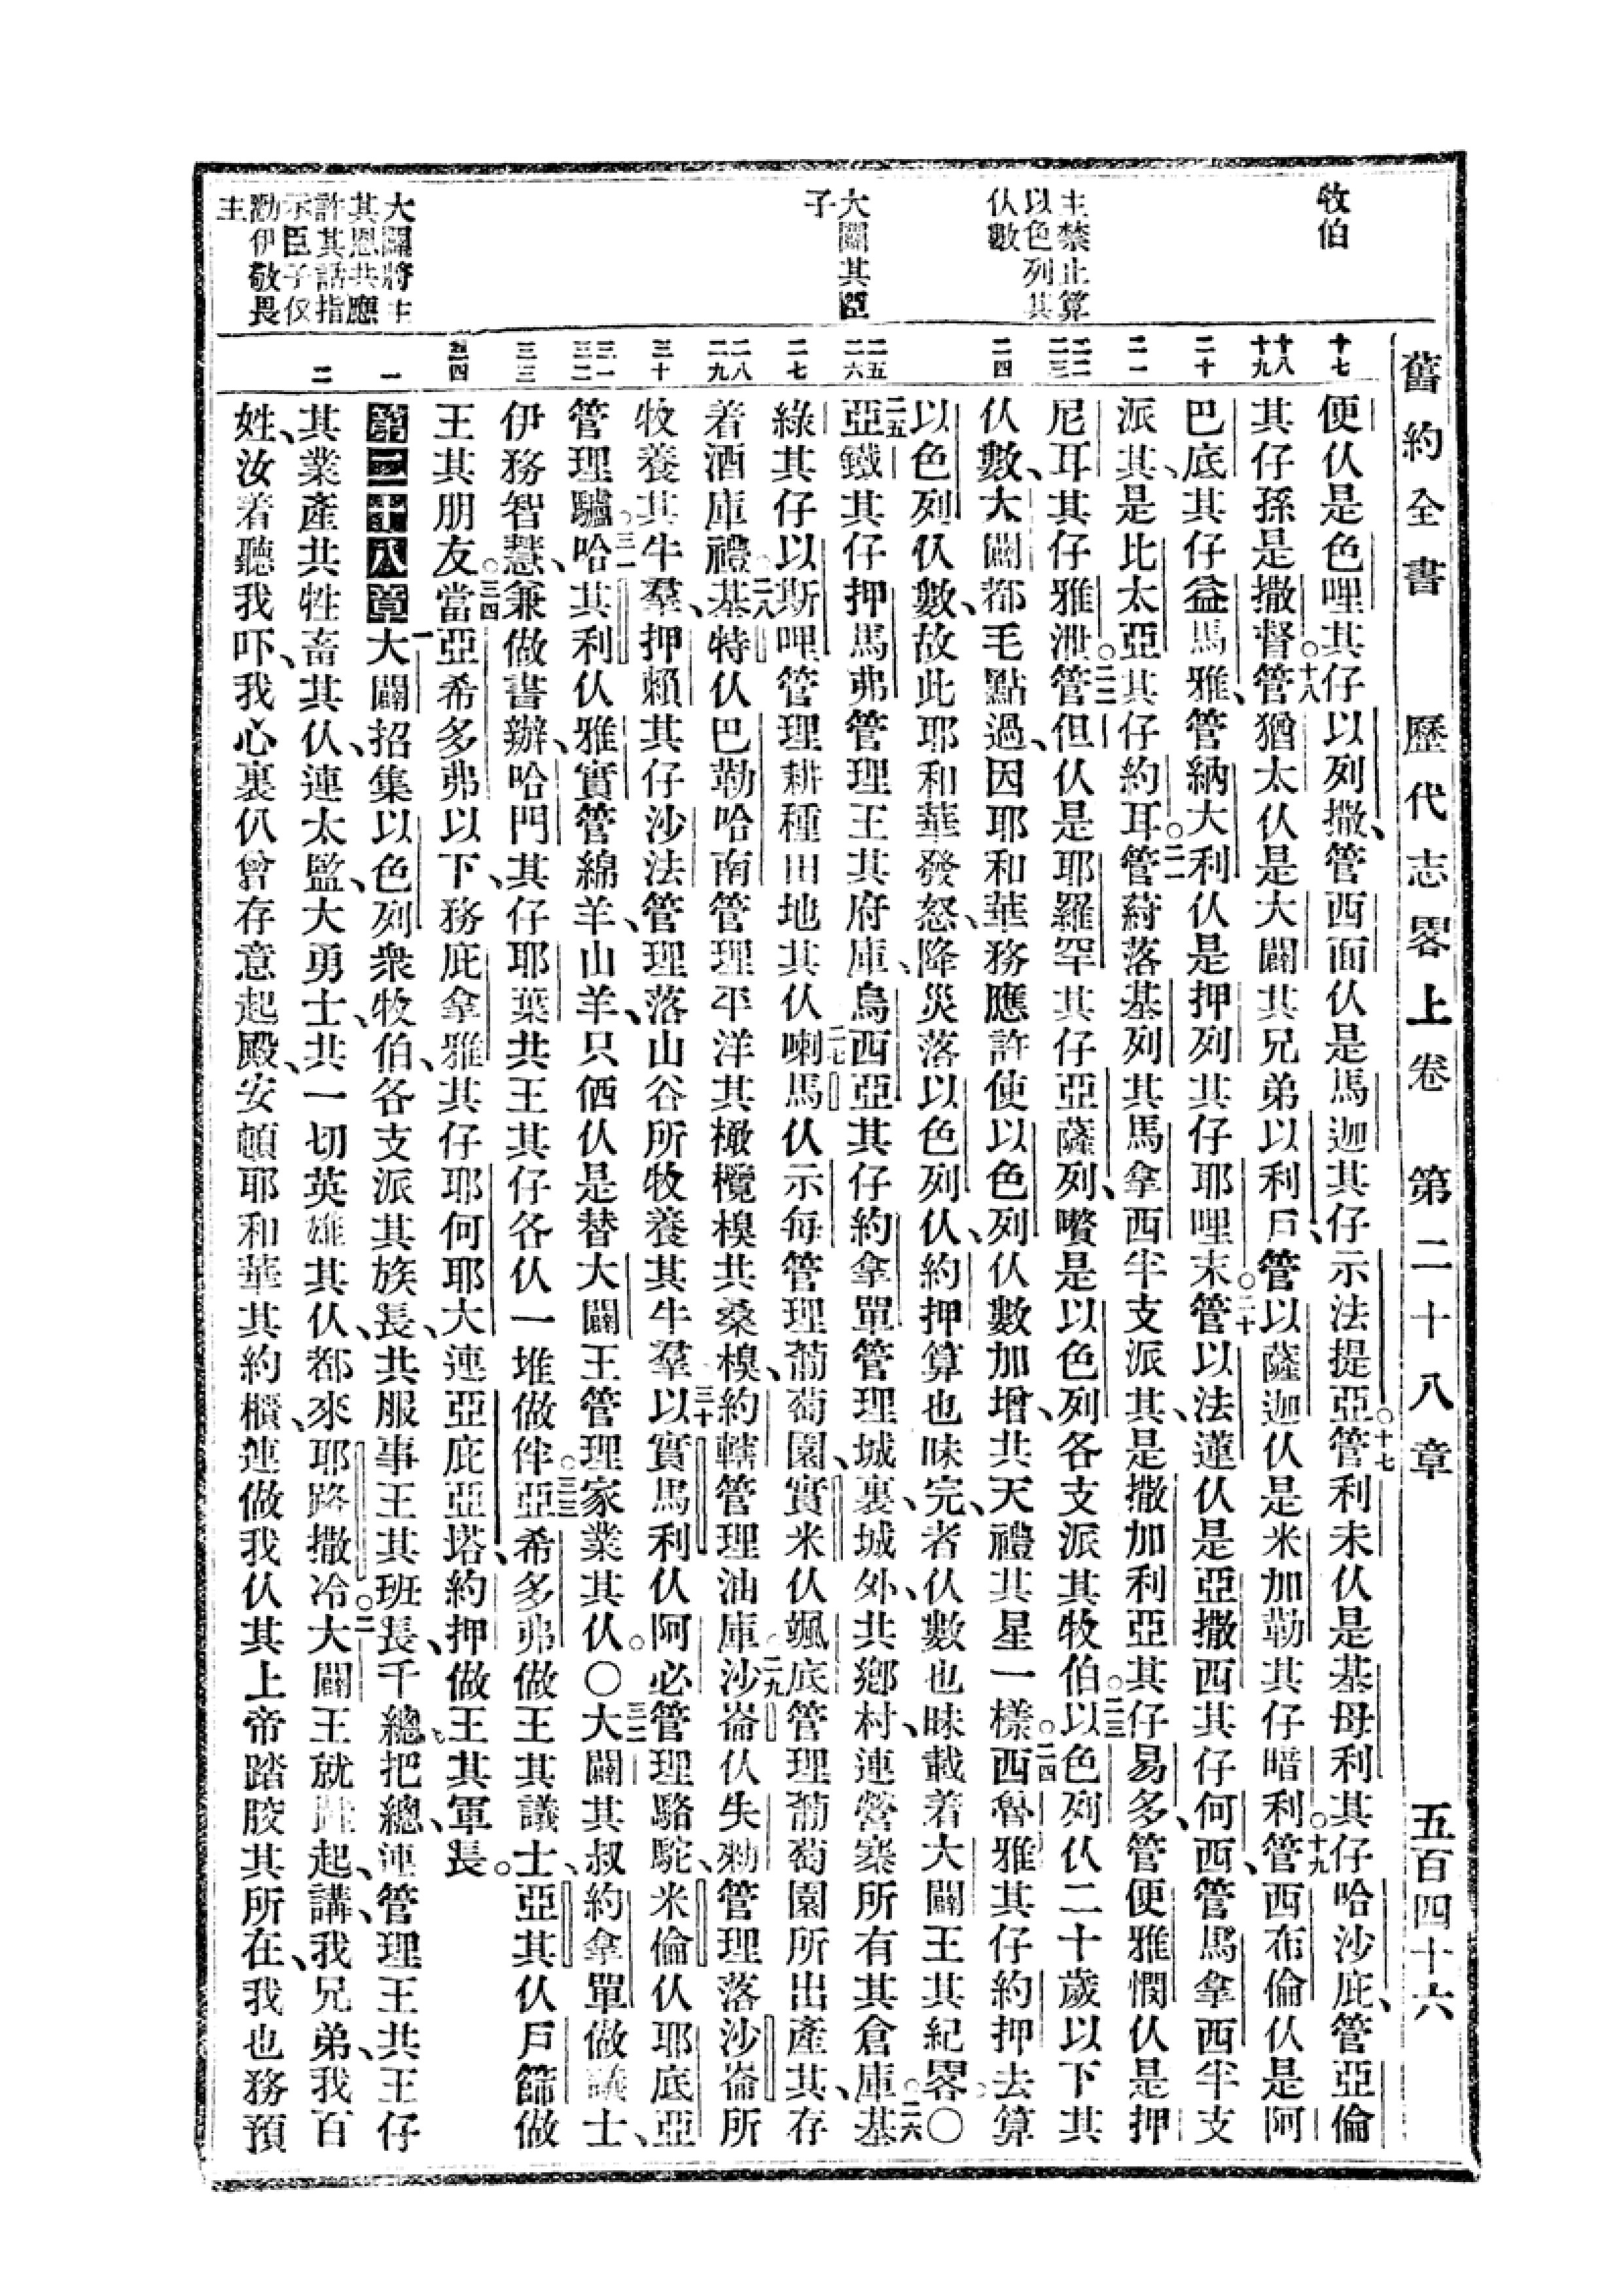 舊約全書　歷代志畧上卷　第二十八章　五百四十六
牧伯
主禁止算
以色列其
仈數
大闢其臣
子
大闢將主
其恩共應
許其話指
示臣子仅
勸伊敬畏
主
十七
十八
十九
二十
二一
二二
二三
二四
二五
二六
二七
二八
二九
三十
三一
三二
三三
三四
一
二
便仈是色哩其仔以列撒、管西面仈是馬迦其仔示法提亞○十七管利未仈是基母利其仔哈沙庇、管亞倫
其仔孫是撒督○十八管猶太仈是大闢其兄弟以利戶、管以薩迦仈是米加勒其仔暗利○十九管西布倫仈是阿
巴底其仔益馬雅、管納大利仈是押列其仔耶哩末○二十管以法蓮仈是亞撒西其仔何西、管馬拿西半支
派其、是比太亞其仔約耳○二一管蒔落基列其馬拿西半支派其、是撒加利亞其仔易多、管便雅憫仈是押
尼耳其仔雅泄○二二管但仈是耶羅罕其仔亞薩列、嚽是以色列各支派其牧伯○二三以色列仈二十歲以下其
仈數、大闢都毛點過、因耶和華務應許使以色列仈數加增、共天禮其星一樣○二四西魯雅其仔約押去算
以色列仈數、故此耶和華發怒、降災落以色列仈、約押算也昧完、者仈數也昧載着大闢王其紀畧○
二五亞鐵其仔押馬弗管理王其府庫、烏西亞其仔約拿單管理城裏、城外、共鄉村、連營寨所有其倉庫○二六基
綠其仔以斯哩管理耕種田地其仈○二七喇馬仈示每管理葡萄園、實米仈颯底管理葡萄園所出產其、存
着酒庫禮○二八基特仈巴勒哈南管理平洋其橄欖模共桑模、約轄管理油庫○二九沙崙仈失勑管理落沙崙所
牧養其牛羣、押賴其仔沙法管理落山谷所牧養其牛羣○三十以實馬利仈阿必管理駱駝、米倫仈耶底亞
管理驢○三一哈其利仈雅實管綿羊、山羊、只価仈是替大闢王管理家業其仈○○三二大闢其叔約拿單做議士、
伊務智慧、兼做書辦、哈門其仔耶葉共王其仔各仈一堆做伴○三三亞希多弗做王其議士、亞其仈戶篩做
王其朋友○三四當亞希多弗以下、務庇拿雅其仔耶何耶大連亞庇亞塔、約押做王其軍長。
第二十八章一大闢招集以色列衆牧伯、各支派其族長、共服事王其班長、千總把總、連管理王共王仔
其業產共牲畜其仈、連太監、大勇士、共一切英雄其仈、都來耶路撒冷○二大闢王就跓起、講、我兄弟、我百
姓、汝着聽我吓、我心裏仈曾存意起殿、安頓耶和華其約櫃、連做我仈其上帝踏骹其所在、我也務預